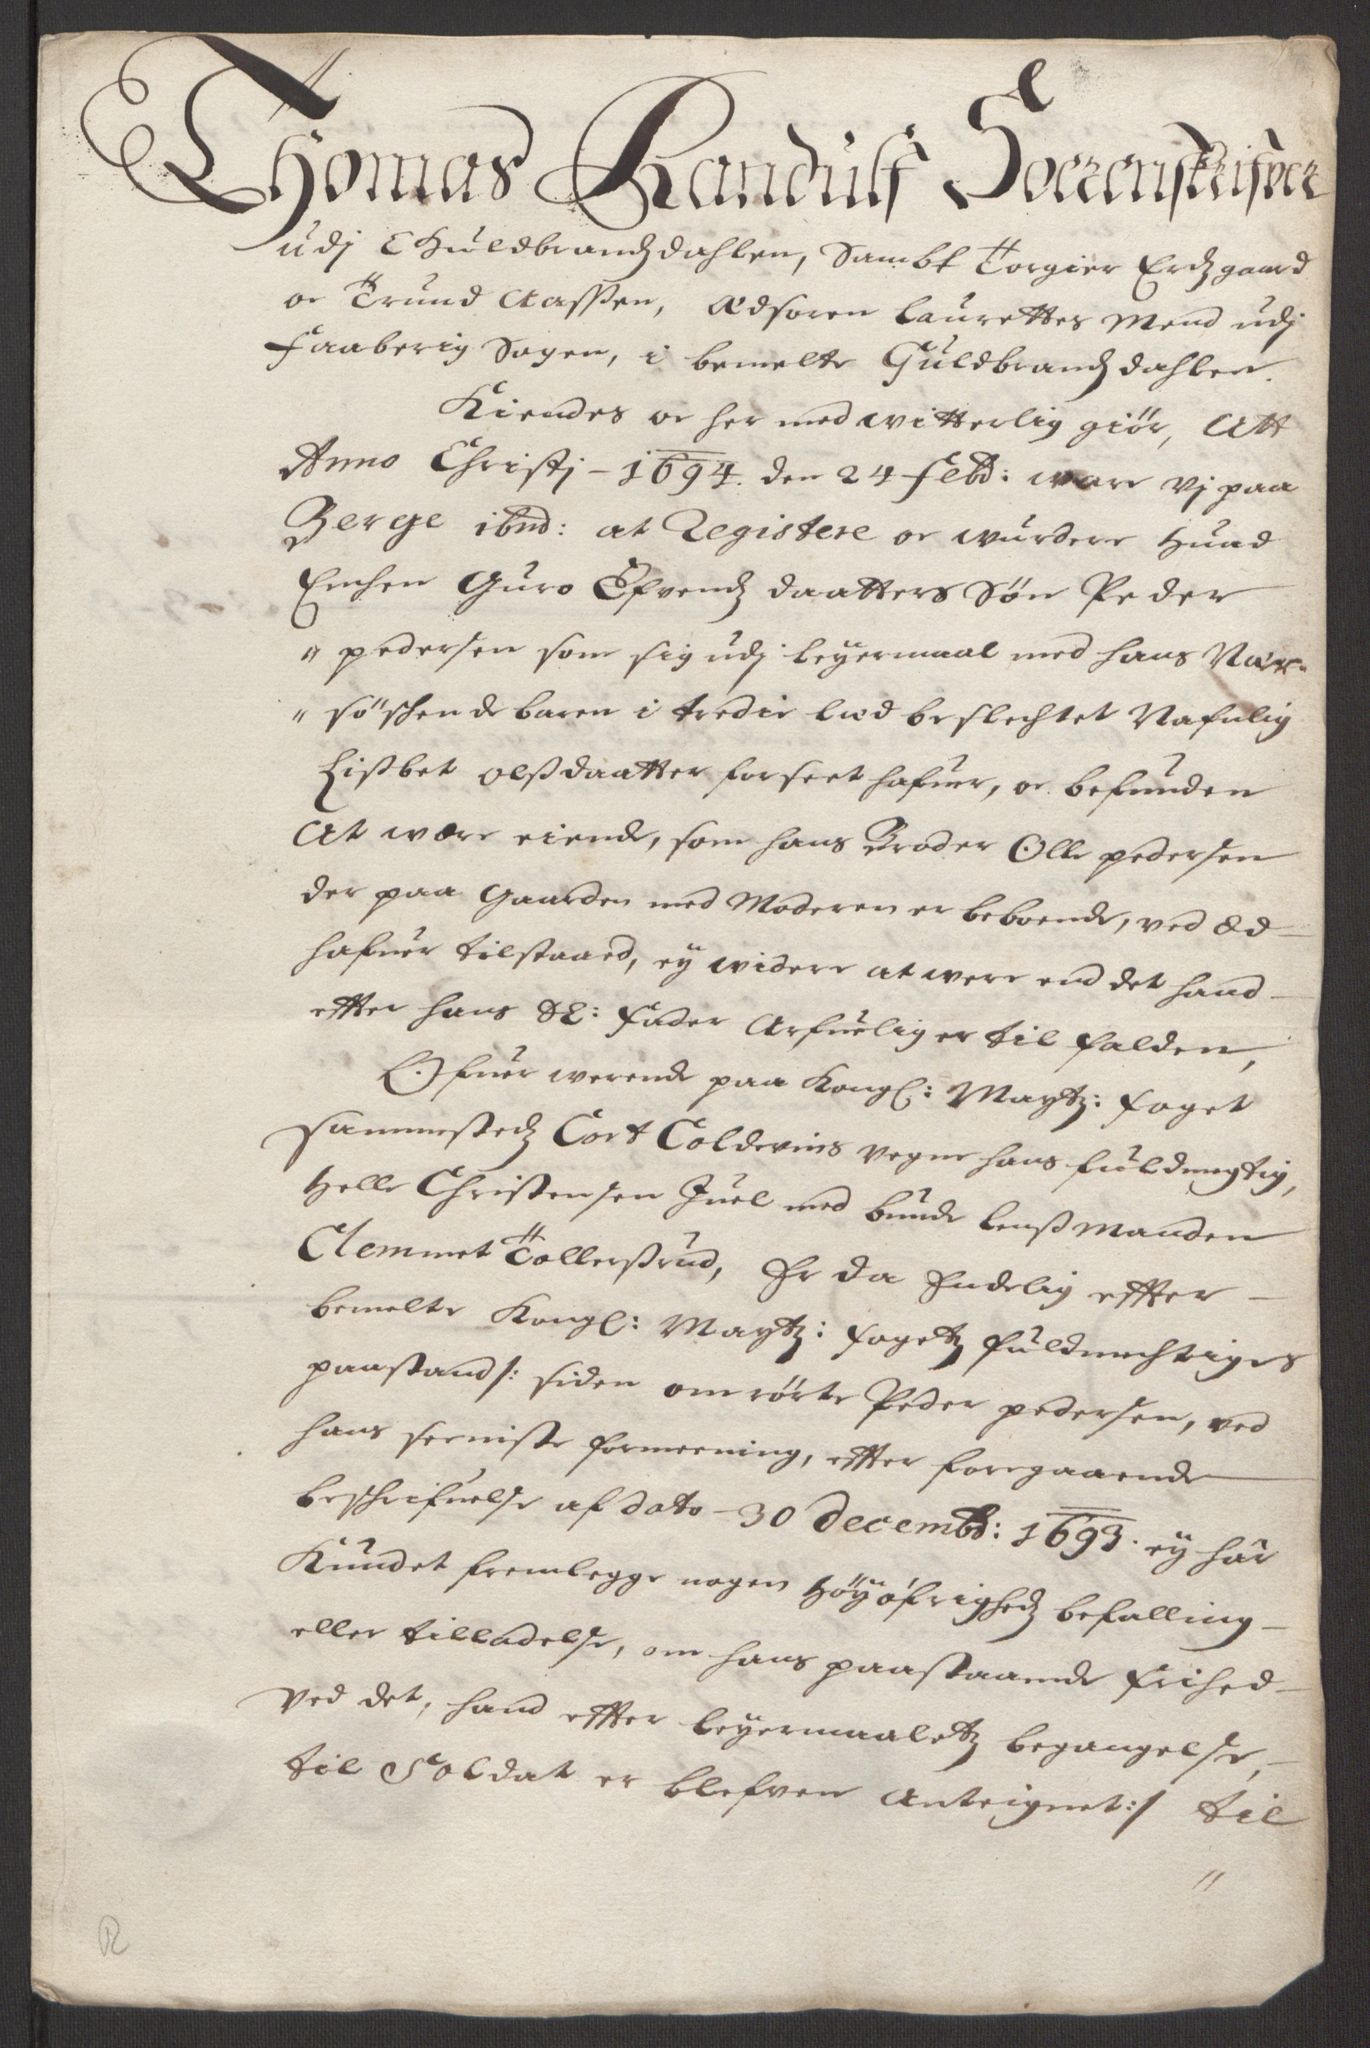 Thomas Randulf Soerenskrifver
udj Guldbrandzdahlen, Sambt Torgier Erdzgaard
oc Trund Aassen, Edsoren Laurettes Mend udj
Faaberig Sogen, i bemelte Guldbrandzdahlen.
Kiendes oc her med witterlig giør, Att
Anno Christj - 1694. den 24 Febd: ware vj paa
Berge ibnd: at Registere oc wurdere huad
Enchen Guro Efvendz daatters Søn Peder
" pedersen som sig udj leyermaal med hans Nær-
" søschende baren i tredie led beslechtet Nafnlig
Lisbet olsdaatter forseet hafuer, oc befunden
At were eiende, som hans Broder Olle pedersen
der paa Gaarden med Moderen er beboende, ved Æd
hafuer tilstaaed, ey widere at were end det hand
effter hans Sl: Fader Arfuelig er til falden,
Ofuer werende paa Kongl: Maytz: foget
sammestedz Cort Coldevins vegne hans fuldmegtig,
Helle Christensen Juel med bunde lensManden
Clemmet Tollersrud, Er da Endelig effter
bemelte Kongl: Maytz: fogetz fuldmechtiges
paastand /: siden om rørte Peder pedersen, ved
hans seeniste formeening, effter foregaaende
beschrifuelse af dato - 30 decembd: 1693. ey har
Kundet fremlegge nogen Høyøfrighedz befalling
eller tilladelse, om hans paastaaende frihed
ved det, hand effter leyermaaletz begangelse,
til Soldat er blefven Anteignet :/ til
"
R